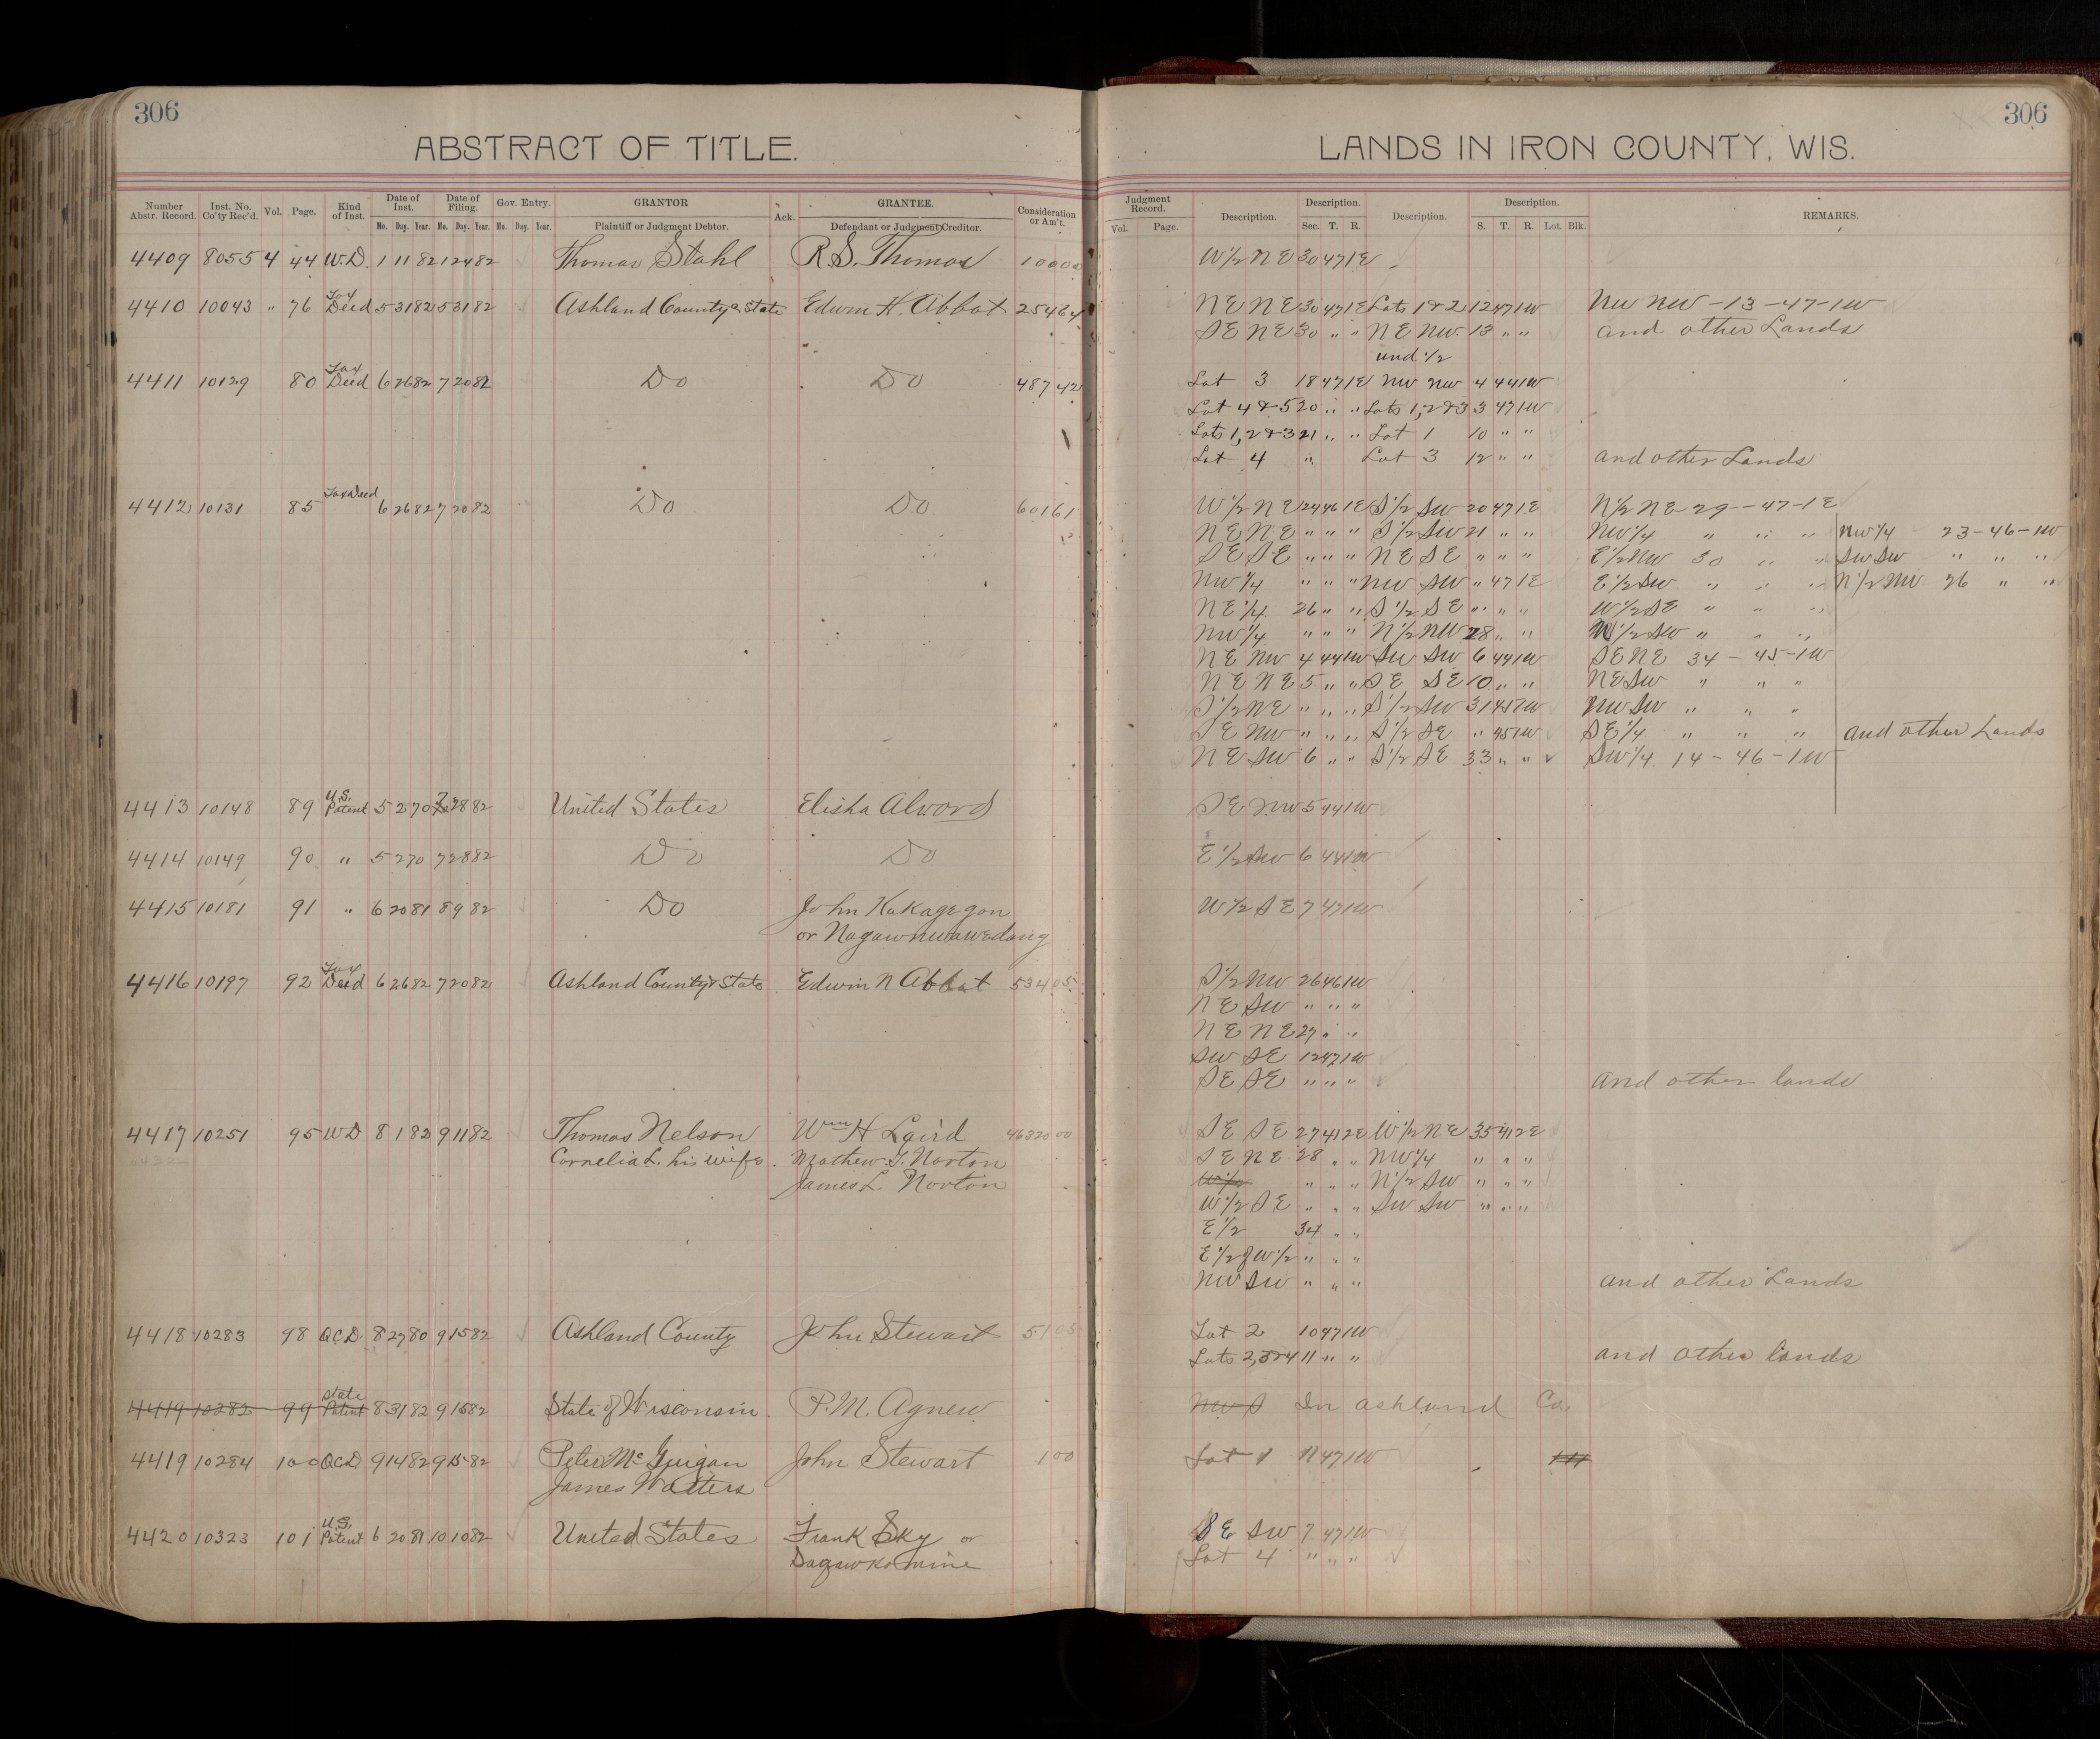 306
306
ABSTRACT OF TITLE.
LANDS IN IRON COUNTY, WIS.
Number Abstr. Record. Inst. No. Co'ty Rec'd. Vol. Page. Kind of Inst. Date of Inst. Date of Filing. Gov. Entry. GRANTOR Ack. GRANTEE. Consideration or Am't. Judgment Record. Description. Description. Description. Description. REMARKS.
Mo. Day. Year. Mo. Day. Year. Mo. Day. Year. Plaintiff or Judgment Debtor. Defendant or Judgment Creditor. Vol. Page. Sec. T. R. S. T. R. Lot. Blk.
4409 8055 4 44 W.D. 1 11 82 1 24 82 Thomas Stahl R.S. Thomas 100 00 W 1/2 N E 30 47 1E
4410 10043 " 76 Tax Deed 5 31 82 5 31 82 Ashland County & State Edwin H. Abbot 254 64 N E N E 30 47 1E Lots 1 & 2 12 47 1W NW NW - 13 - 47 - 1W
S E N E 30 " " N E NW. 13 " " and other Lands
und 1/2
4411 10129 80 Tax Deed 6 26 82 7 20 82 Do Do 487 42 Lot 3 18 47 1E NW NW 4 44 1W
Lot 4 & 5 20 " " Lots 1, 2 & 3 3 47 1W
Lots 1, 2 & 3 21 " " Lot 1 10 " "
Lot 4 " Lot 3 12 " " and other Lands
4412 10131 85 Tax Deed 6 26 82 7 20 82 Do Do 601 61 W 1/2 N E 24 46 1E S 1/2 SW 20 47 1E N 1/2 NE 29 - 47 - 1E
N E N E " " " S 1/2 SW 21 " " NW 1/4 " " " NW 1/4 23 - 46 - 1W
S E S E " " " N E S E " " " E 1/2 NW 30 " " SW SW " " "
NW 1/4 " " " NW SW " 47 1E E 1/2 SW " " " N 1/2 NW 26 " "
N E 1/4 26 " " S 1/2 S E " " " W 1/2 SE " " "
NW 1/4 " " " N 1/2 NW 28 " " W 1/2 SW " " "
N E NW 4 44 1W SW SW 6 44 1W S E N E 34 - 45 - 1W
N E N E 5 " " S E S E 10 " " N E SW " " "
S 1/2 N E " " " S 1/2 SW 31 45 1W NW SW " " "
S E NW " " " S 1/2 SE " 45 1W S E 1/4 " " " and other Lands
N E SW 6 " " S 1/2 S E 33 " " SW 1/4 14 - 46 - 1W
4413 10148 89 U.S. Patent 5 2 70 7 28 82 United States Elisha Alvord S E NW 5 44 1W
4414 10149 90 " 5 2 70 7 28 82 Do Do E 1/2 SW 6 44 1W
4415 10181 91 " 6 20 81 8 9 82 Do John Kakagegon W 1/2 S E 7 47 1W
or
4416 10197 92 Tax Deed 6 26 82 7 20 82 Ashland County & State Edwin N Abbot 534 05 S 1/2 NW 26 46 1W
N E SW " " "
N E N E 27 " "
SW S E 12 47 1W
S E S E " " " and other lands
4417 10251 95 WD 8 1 82 9 11 82 Thomas Nelson Wm H Laird 46320 00 S E S E 27 41 2E W 1/2 N E 35 41 2E
Cornelia L. his wife. Mathew G. Norton S E N E 28 " " NW 1/4 " " "
James L. Norton " " " N 1/2 SW " " "
W 1/2 S E " " " SW SW " " "
E 1/2 34 " "
E 1/2 of W 1/2 " " "
NW SW " " " and other Lands
4418 10283 98 QCD. 8 27 80 9 15 82 Ashland County John Stewart 51 05 Lot 2 10 47 1W
Lots 2, 3 & 4 11 " " and other lands
4419 10282 99 State Patent 8 31 82 9 15 82 State of Wisconsin. P. M. Agnew NW S In Ashland Co.
4419 10284 100 QCD 9 14 82 9 15 82 Peter McGuigan John Stewart 1 00 Lot 1 11 47 1W
James Watters
4420 10323 101 U.S. Patent 6 20 81 10 10 82 United States Frank Sky or S E SW 7 47 1W
Lot 4 " " "